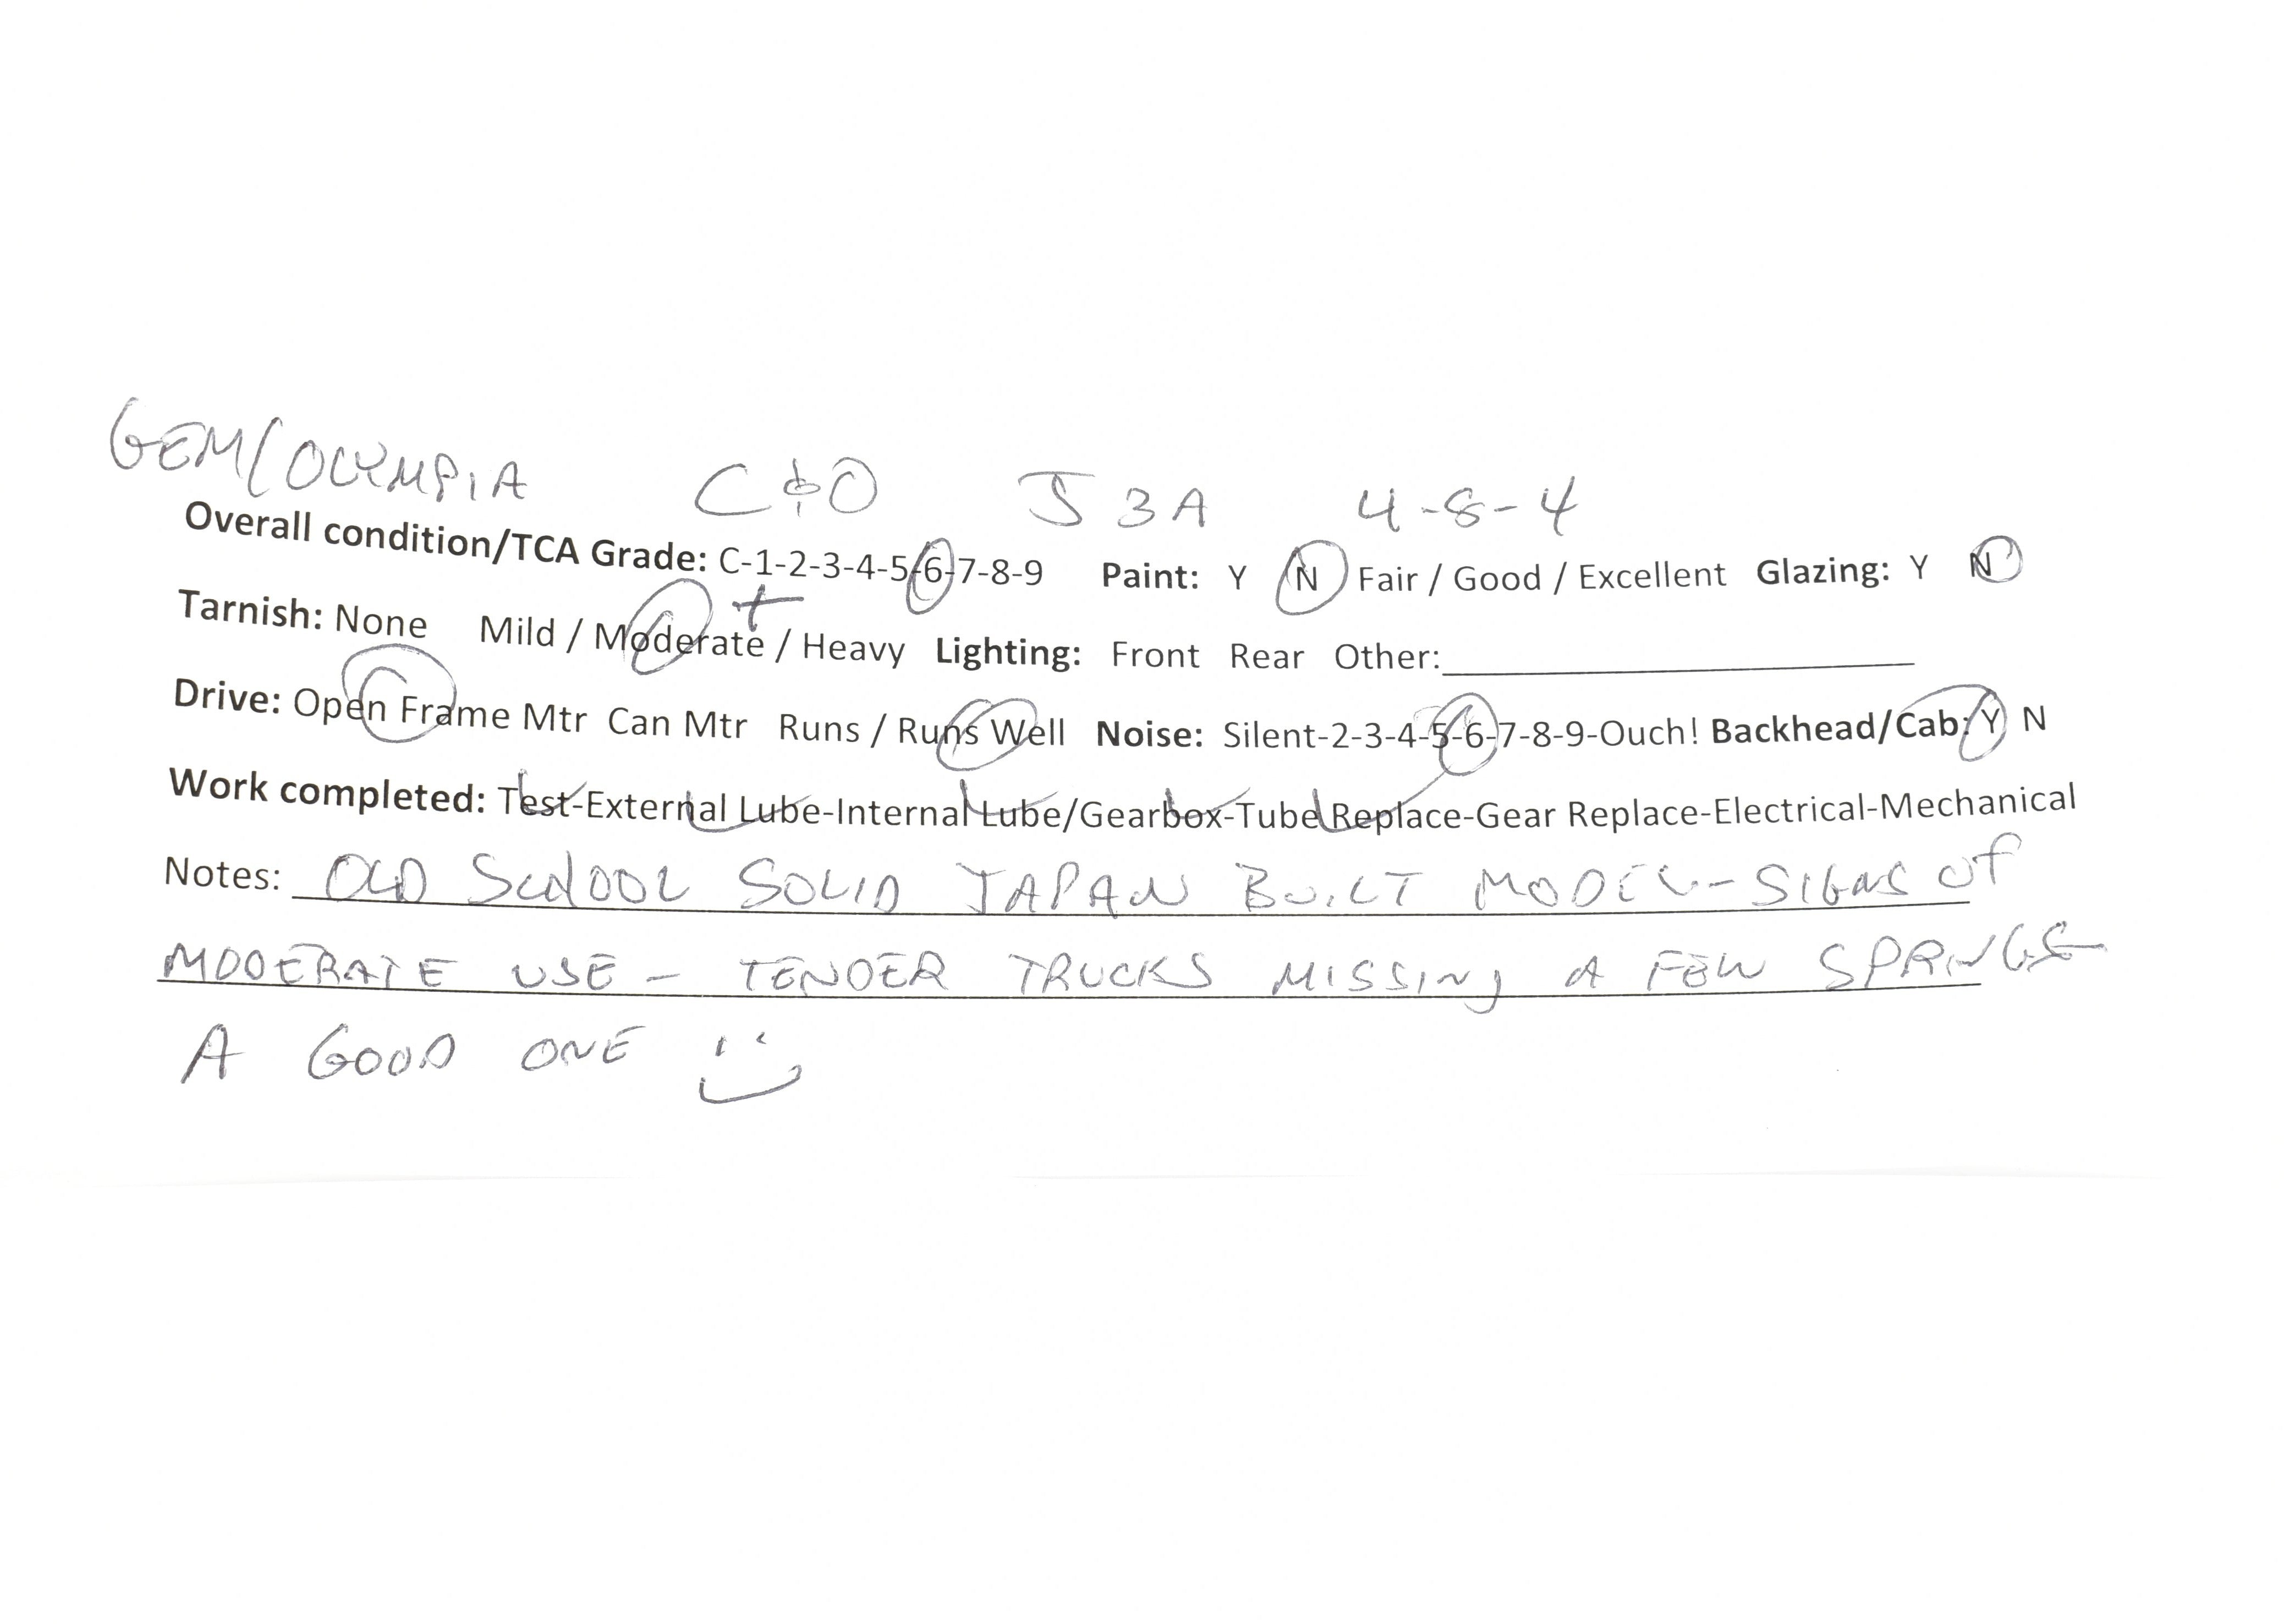 GEM/OLYMPIA C&O J3A 4-8-4
Overall condition/TCA Grade: C-1-2-3-4-5-6-7-8-9 Paint: Y N Fair / Good / Excellent Glazing: Y N
Tarnish: None Mild / Moderate + / Heavy Lighting: Front Rear Other:
Drive: Open Frame Mtr Can Mtr Runs / Runs Well Noise: Silent-2-3-4-5-6-7-8-9-Ouch! Backhead/Cab: Y N
Work completed: Test-External Lube-Internal Lube/Gearbox-Tube Replace-Gear Replace-Electrical-Mechanical
Notes: OLD SCHOOL SOLID JAPAN BUILT MODEL - SIGNS OF
MODERATE USE - TENDER TRUCKS MISSING A FEW SPRINGS
A GOOD ONE